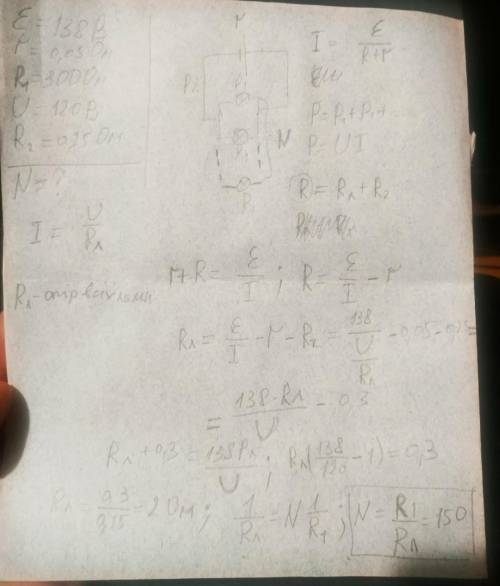 ε = 138 В
r = 0,05 Ом
R₁ = 300 Ом
U = 120 В
R₂ = 0,25 Ом
N = ?
I = U/Rл
Rл -
r
N
I = ε/(R+r)
P = P₁ + P₁ + ...
P = UI
R = Rл + R₂
r + R = ε/I ; R = ε/I - r
Rл = ε/I - r - R₂ = 138/(U/Rл) - 0,05 - 0,25 =
= 138·Rл/U - 0,3
Rл + 0,3 = 138Rл/U ; Rл(138/120 - 1) = 0,3
Rл = 0,3/0,15 = 2 Ом ; 1/Rл = N 1/R₁ ; N = R1/Rл = 150